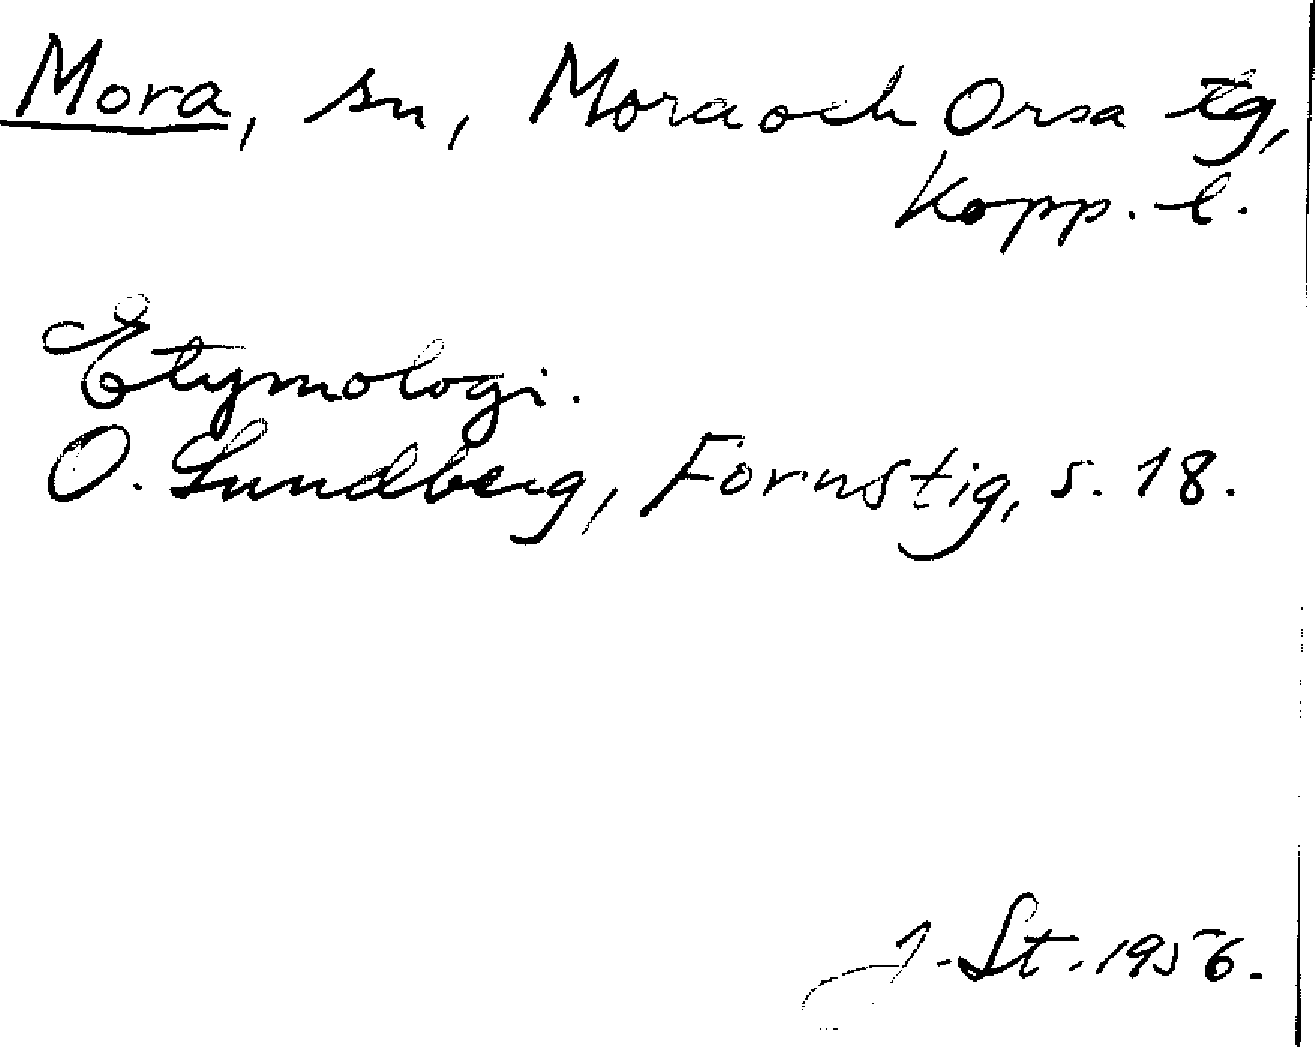 Mora, sn, Mora och Orsa tg,
Kopp. l.
Etymologi.
O. Lundberg, Fornstig, s. 18.
J. St. 1956.